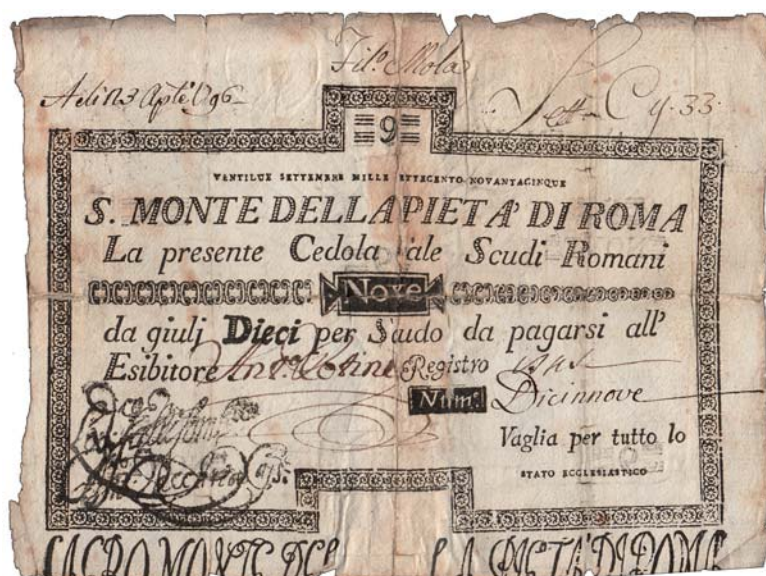 Fil.º Mola
A dì 23 Aple 1796
9
VENTILUE SETTEMBRE MILLE SETTECENTO NOVANTACINQUE
S. MONTE DELLA PIETA' DI ROMA
La presente Cedola vale Scudi Romani
Nove
da giulj Dieci per Scudo da pagarsi all'
Esibitore Registro
Num.º Dicinnove
Vaglia per tutto lo
STATO ECCLESIASTICO
SACRO MONTE DEL LA PIETA' DI ROMA